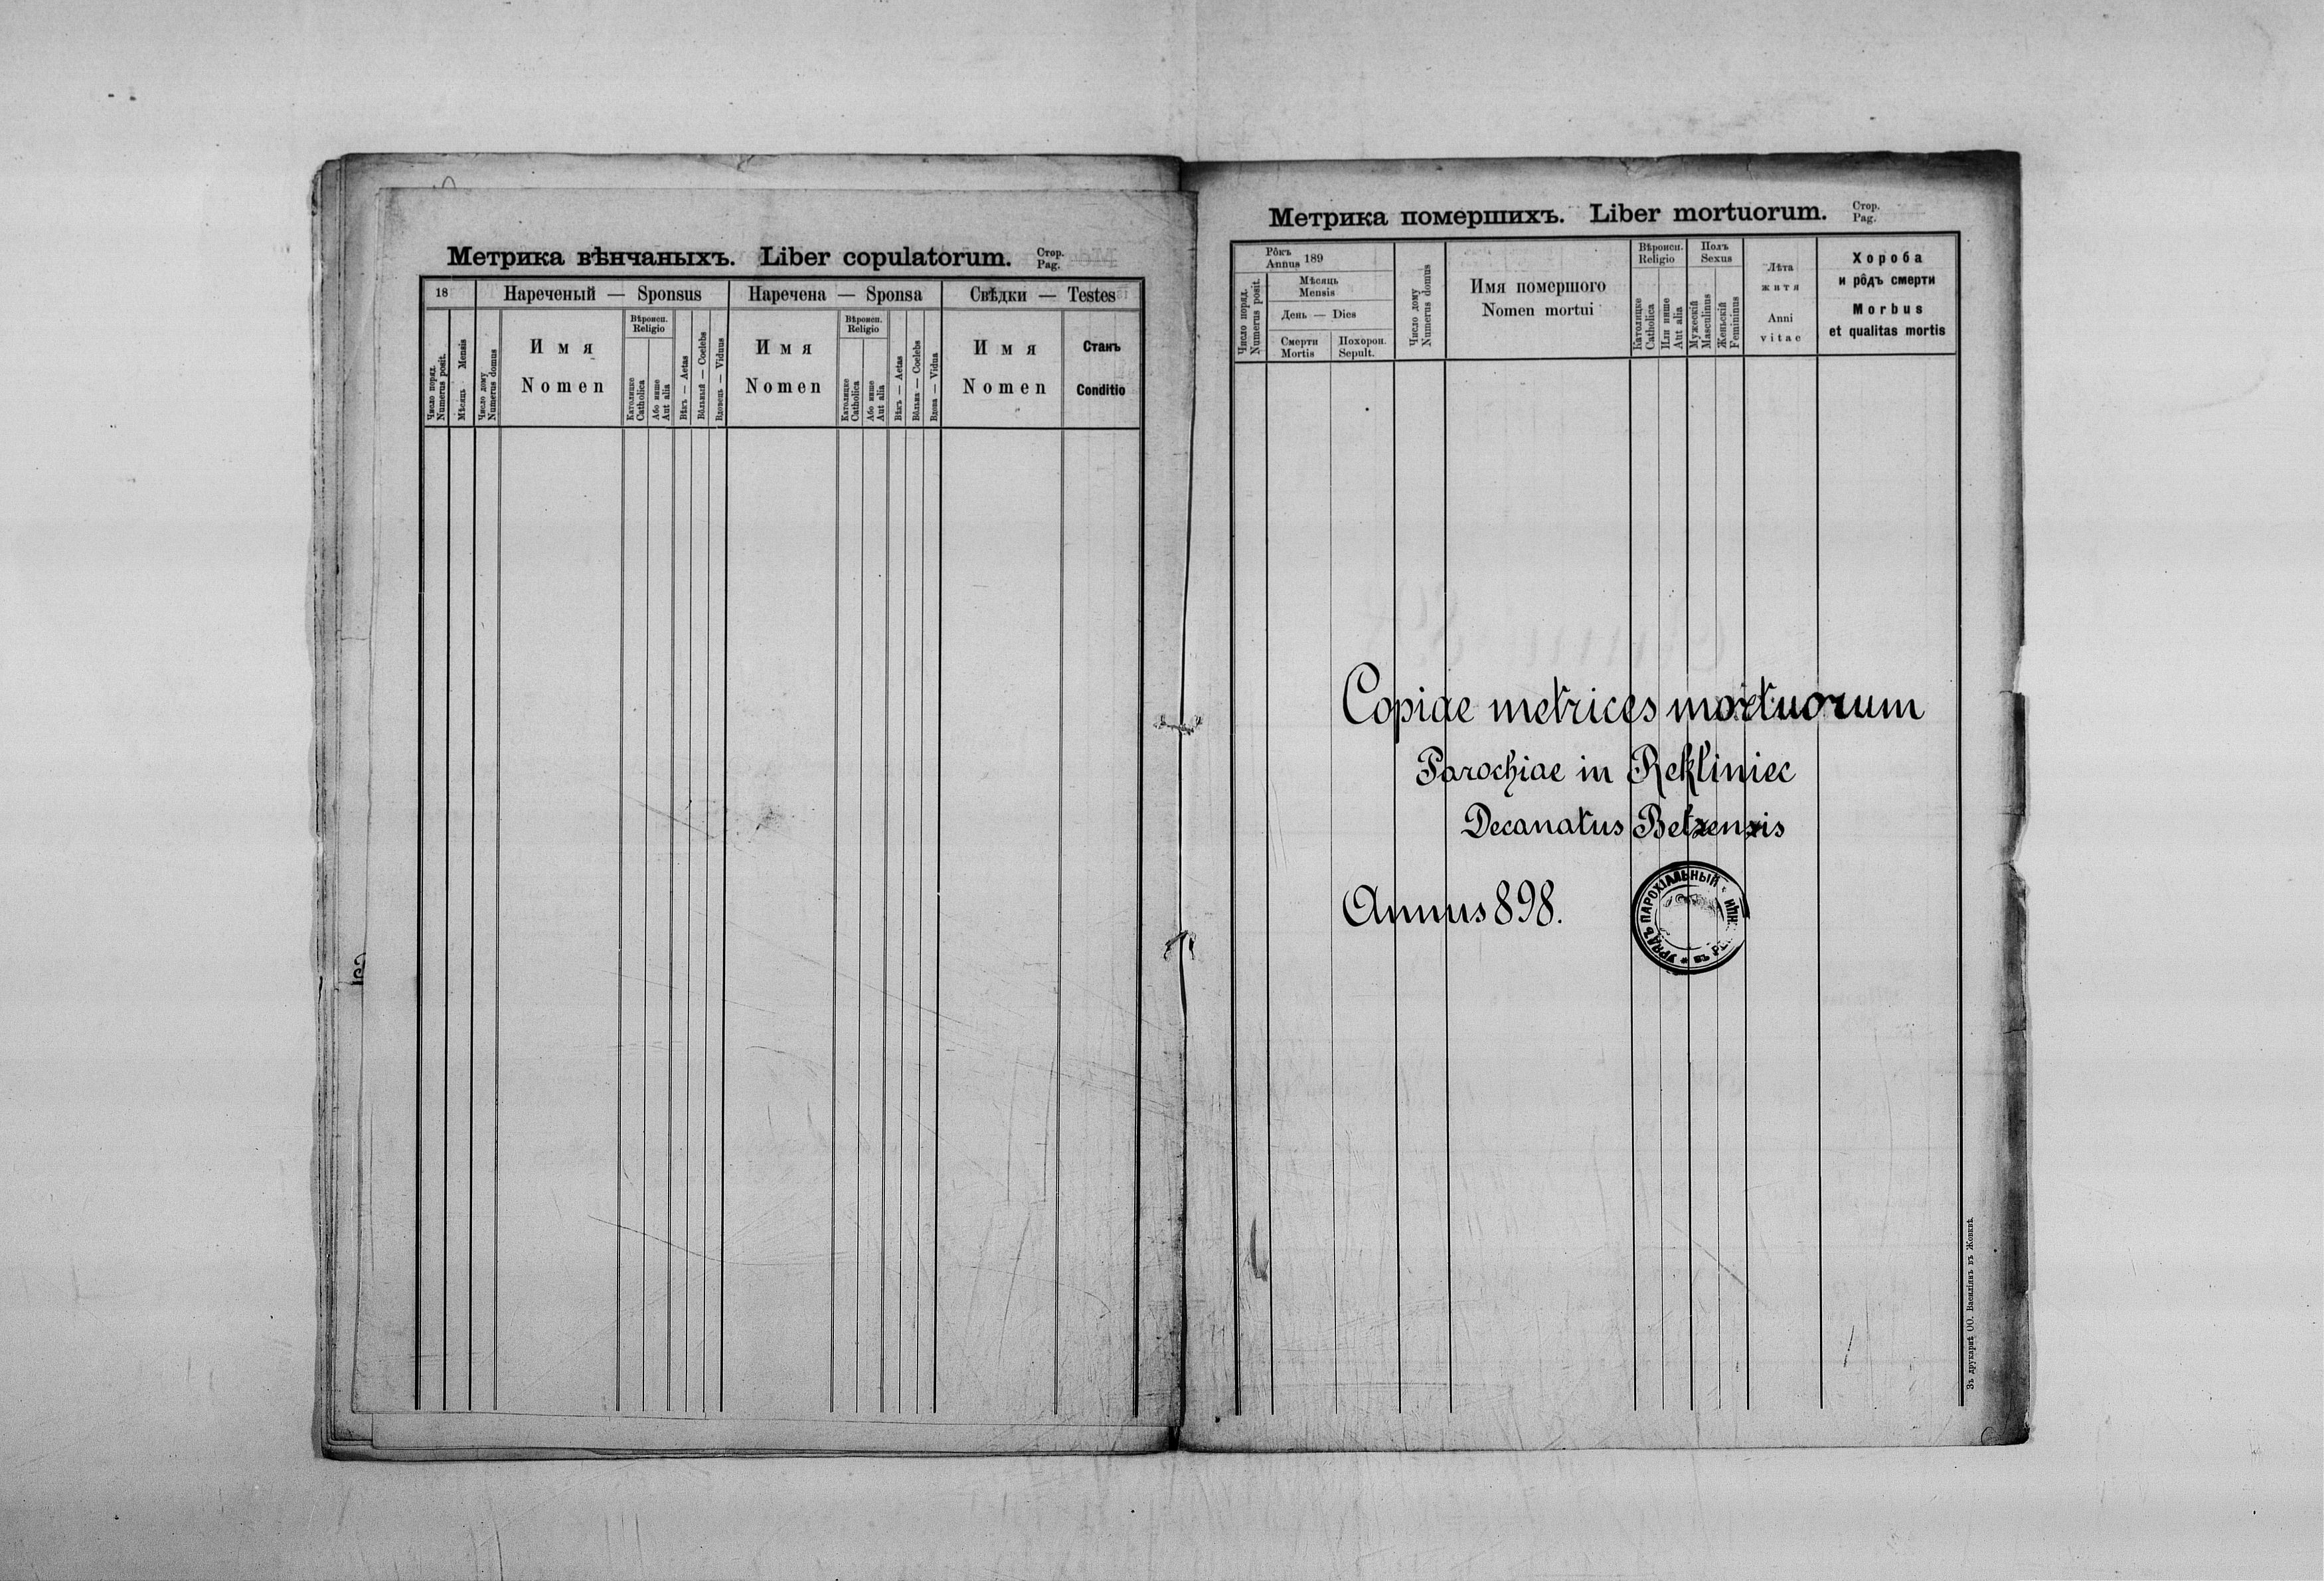 Метрика вѣнчаныхъ. Liber copulatorum. Стор.
Pag.
18
Нареченый — Sponsus
Наречена — Sponsa
Свѣдки — Testes
Число поряд.
Numerus posit.
Мѣсяць Mensis
Число дому
Numerus domus
Имя
Nomen
Вѣроисп.
Religio
Католицке
Catholica
Або инше
Aut alia
Вѣкъ — Aetas
Вôльный — Coelebs
Вдовець — Viduus
Имя
Nomen
Вѣроисп.
Religio
Католицке
Catholica
Або инше
Aut alia
Вѣкъ — Aetas
Вôльна — Coelebs
Вдова — Vidua
Имя
Nomen
Станъ
Conditio
Метрика помершихъ. Liber mortuorum. Стор.
Pag.
Число поряд.
Numerus posit.
Рôкъ
Annus 189
Мѣсяць
Mensis
День — Dies
Смерти
Mortis
Похорон.
Sepult.
Число дому
Numerus domus
Имя помершого
Nomen mortui
Вѣроисп.
Religio
Католицке
Catholica
Или инше
Aut alia
Полъ
Sexus
Мужескій
Masculinus
Женьскій
Femininus
Лѣта
житя
Anni
vitae
Хороба
и рôдъ смерти
Morbus
et qualitas mortis
Copiae metrices mortuorum
Parochiae in Rekliniec
Decanatus Betzensis
Annus 898.
УРЯДЪ ПАРОХІАЛЬНЫЙ
въ
Зъ друкарнѣ ОО. Василіянъ въ Жовквѣ.